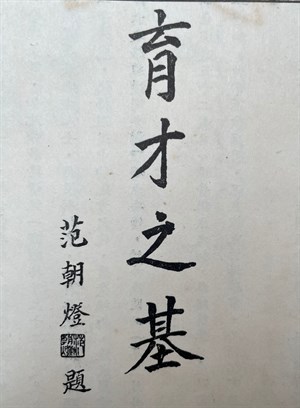 育才之基
范朝燈題